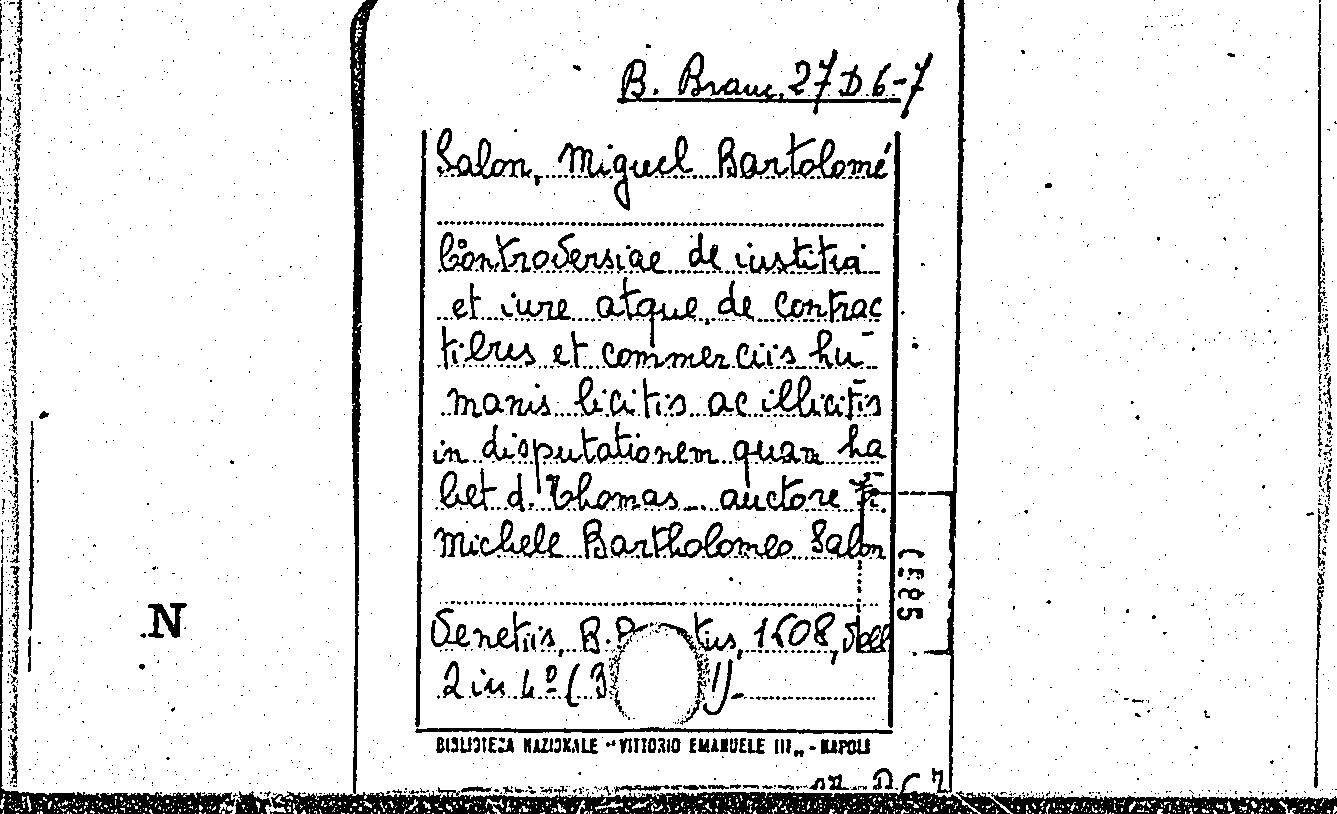 B. Branc. 27 D 6-7
Salon, Miguel Bartolomé
Controversiae de iustitia
et iure atque de contrac
tibus et commerciis hu-
manis licitis ac illicitis
in disputationem quam ha
bet d. Thomas auctore Fr.
Michele Bartholomeo Salon
Venetiis, B. 1608, Voll
2 in 4º (3
BIBLIOTECA NAZIONALE "VITTORIO EMANUELE III" - NAPOLI
N